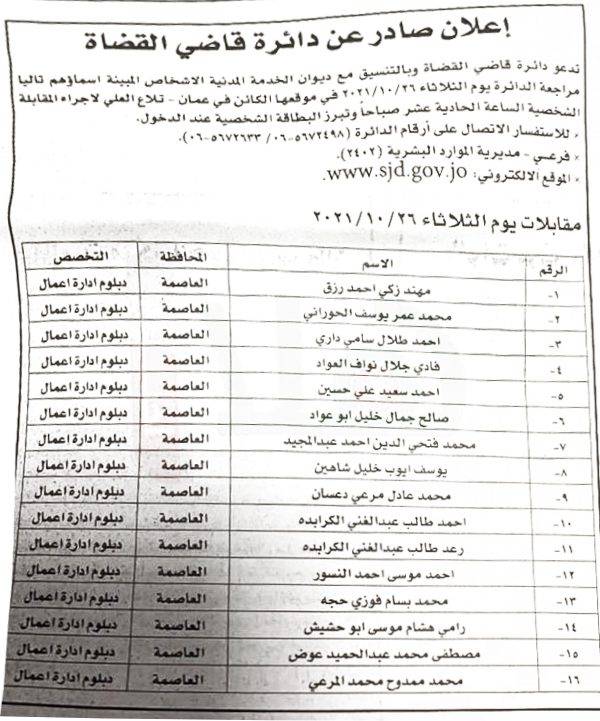 إعلان صادر عن دائرة قاضي القضاة
تدعو دائرة قاضي القضاة وبالتنسيق مع ديوان الخدمة المدنية الاشخاص المبينة اسماؤهم تاليا
مراجعة الدائرة يوم الثلاثاء ٢٠٢١/١٠/٢٦ في موقعها الكائن في عمان - تلاع العلي لاجراء المقابلة
الشخصية الساعة الحادية عشر صباحاً وتبرز البطاقة الشخصية عند الدخول.
* للاستفسار الاتصال على أرقام الدائرة (٥٦٧٢٤٩٨-٠٦/ ٥٦٧٢٦٣٣-٠٦).
* فرعي - مديرية الموارد البشرية (٢٤٠٢).
* الموقع الالكتروني: www.sjd.gov.jo.
مقابلات يوم الثلاثاء ٢٠٢١/١٠/٢٦
الرقم الاسم المحافظة التخصص
١- مهند زكي احمد رزق العاصمة دبلوم ادارة اعمال
٢- محمد عمر يوسف الحوراني العاصمة دبلوم ادارة اعمال
٣- احمد طلال سامي داري العاصمة دبلوم ادارة اعمال
٤- فادي جلال نواف العواد العاصمة دبلوم ادارة اعمال
٥- احمد سعيد علي حسين العاصمة دبلوم ادارة اعمال
٦- صالح جمال خليل ابو عواد العاصمة دبلوم ادارة اعمال
٧- محمد فتحي الدين احمد عبدالمجيد العاصمة دبلوم ادارة اعمال
٨- يوسف ايوب خليل شاهين العاصمة دبلوم ادارة اعمال
٩- محمد عادل مرعي دعسان العاصمة دبلوم ادارة اعمال
١٠- احمد طالب عبدالغني الكرابده العاصمة دبلوم ادارة اعمال
١١- رعد طالب عبدالغني الكرابده العاصمة دبلوم ادارة اعمال
١٢- احمد موسى احمد النسور العاصمة دبلوم ادارة اعمال
١٣- محمد بسام فوزي حجه العاصمة دبلوم ادارة اعمال
١٤- رامي هشام موسى ابو حشيش العاصمة دبلوم ادارة اعمال
١٥- مصطفى محمد عبدالحميد عوض العاصمة دبلوم ادارة اعمال
١٦- محمد ممدوح محمد المرعي العاصمة دبلوم ادارة اعمال